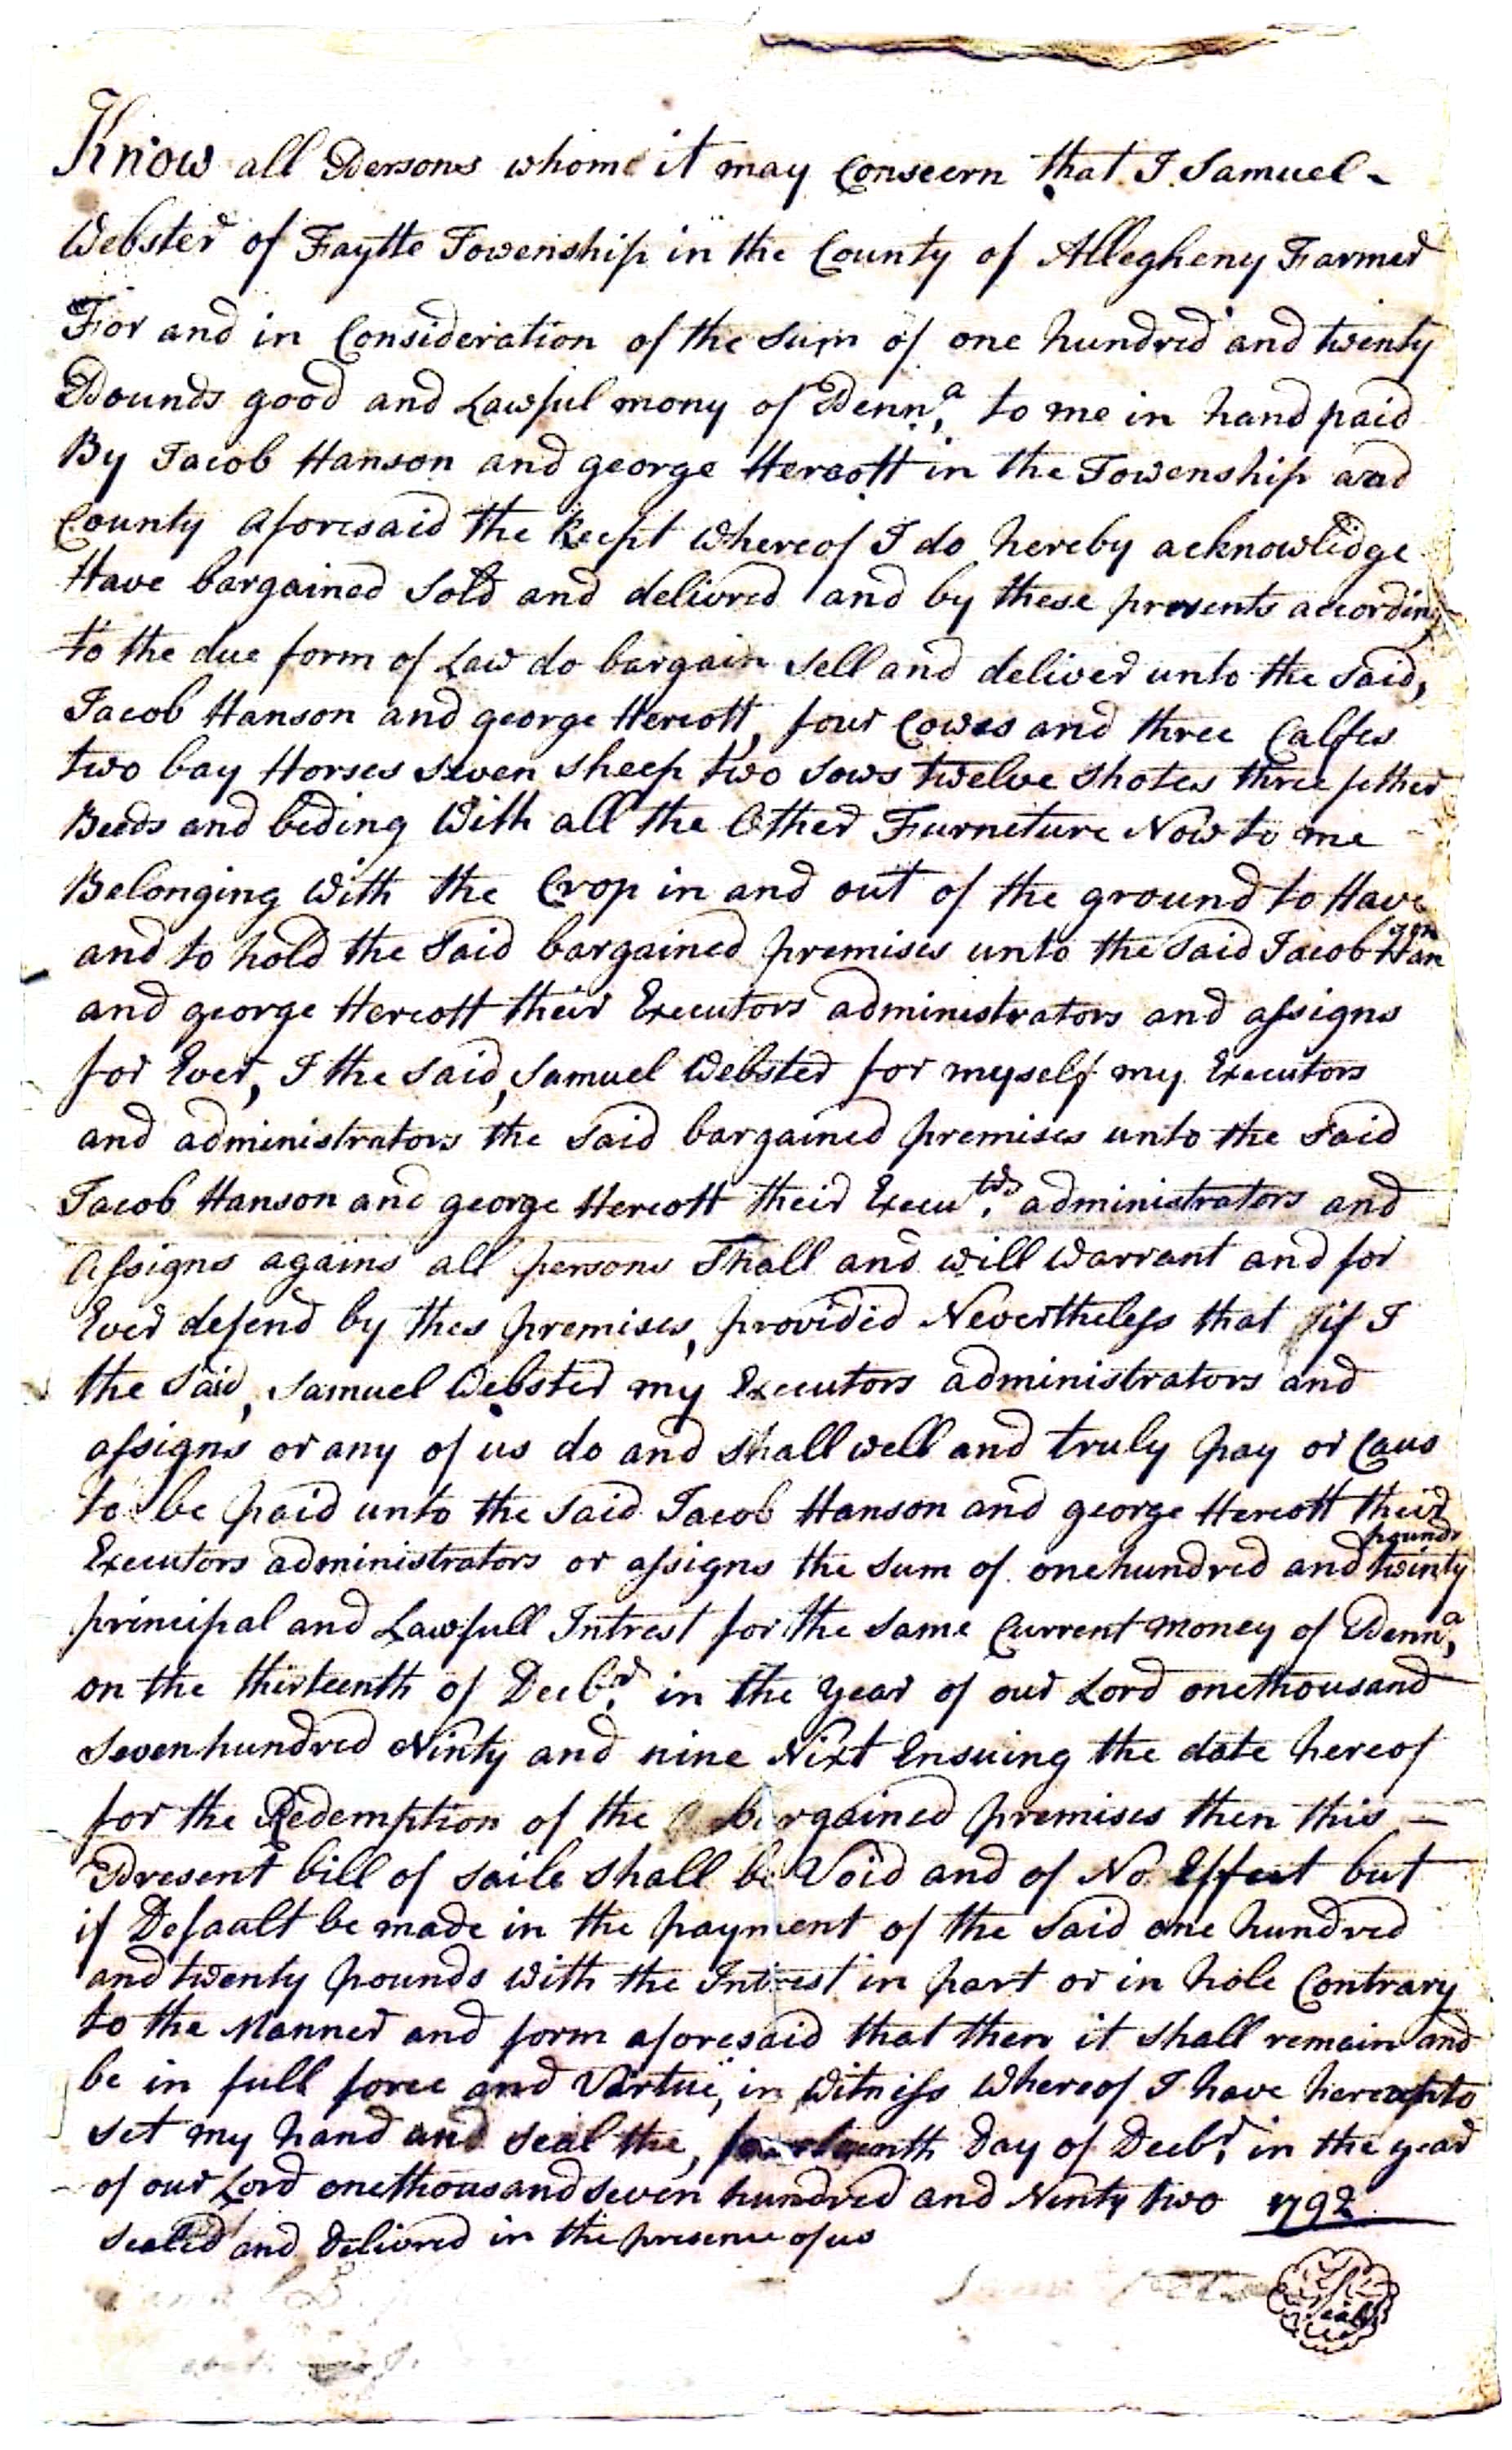 Know all Persons whome it may Conscern that I Samuel
Webster of Faytte Towenship in the County of Allegheny Farmer
For and in Consideration of the Sum of one hundred and twenty
Pounds good and Lawful mony of Pennᵃ, to me in hand paid
By Jacob Hanson and george Hercott in the Towenship and
County aforesaid the Recpt whereof I do hereby acknowlidge
Have bargained Sold and delivred and by these presents according
to the due form of Law do bargain Sell and deliver unto the Said,
Jacob Hanson and george Hercott, four Cowes and three Calfes
two bay Horses seven sheep two sows twelve shotes three fether
Beeds and beding With all the Other Furneture Now to me
Belonging with the Crop in and out of the ground to Have
and to hold the Said bargained premises unto the Said Jacob Hanson
and george Hercott their Executors administrators and assigns
for Ever, I the Said, Samuel Webster for myself my Executors
and administrators the Said bargained premises unto the Said
Jacob Hanson and george Hercott their Execuᵗʳˢ. administrators and
Assigns agains all persons Shall and will Warrant and for
Ever defend by thes premises, providid Nevertheless that if I
the Said, Samuel Webster my Executors administrators and
assigns or any of us do and shall well and truly pay or Caus
to be paid unto the Said Jacob Hanson and george Hercott their
Executors administrators or assigns the Sum of onehundred and twinty pounds
principal and Lawfull Intrest for the Same Current money of Pennᵃ,
on the thirteenth of Decbʳ. in the year of our Lord onethousand
Sevenhundred Ninty and nine Nixt Ensuing the date hereof
for the Redemption of the bargained premises then this
Present bill of saile shall be Void and of No Effect but
if Default be made in the payment of the Said one hundred
and twenty pounds with the Intrest in part or in hole Contrary
to the Manner and form aforesaid that then it shall remain and
be in full force and Virtue, in Witniss Whereof I have hereunto
set my hand and seal the, fourteenth Day of Decbʳ. in the year
of our Lord onethousand seven hundred and Ninty two 1792
Sealed and Delivred in the presence of us
Seal